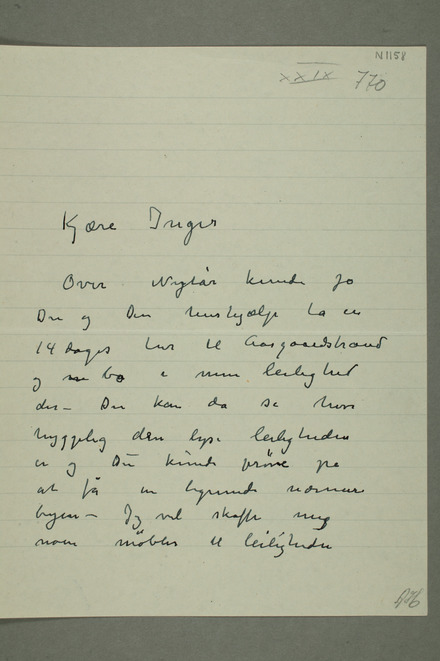 N 1158
XXIX 770
Kjære Inger
Over Nytår kunde jo
Du og Din hushjælp ta en
14 dages tur til Aasgaardstrand
og bo i min leilighed
der – Du kan da se hvor
hyggelig den lyse leiligheden
er og Du kunde prøve på
at få en nærmere
byen – Jeg vil skaffe mig
noen møbler til leiligheden